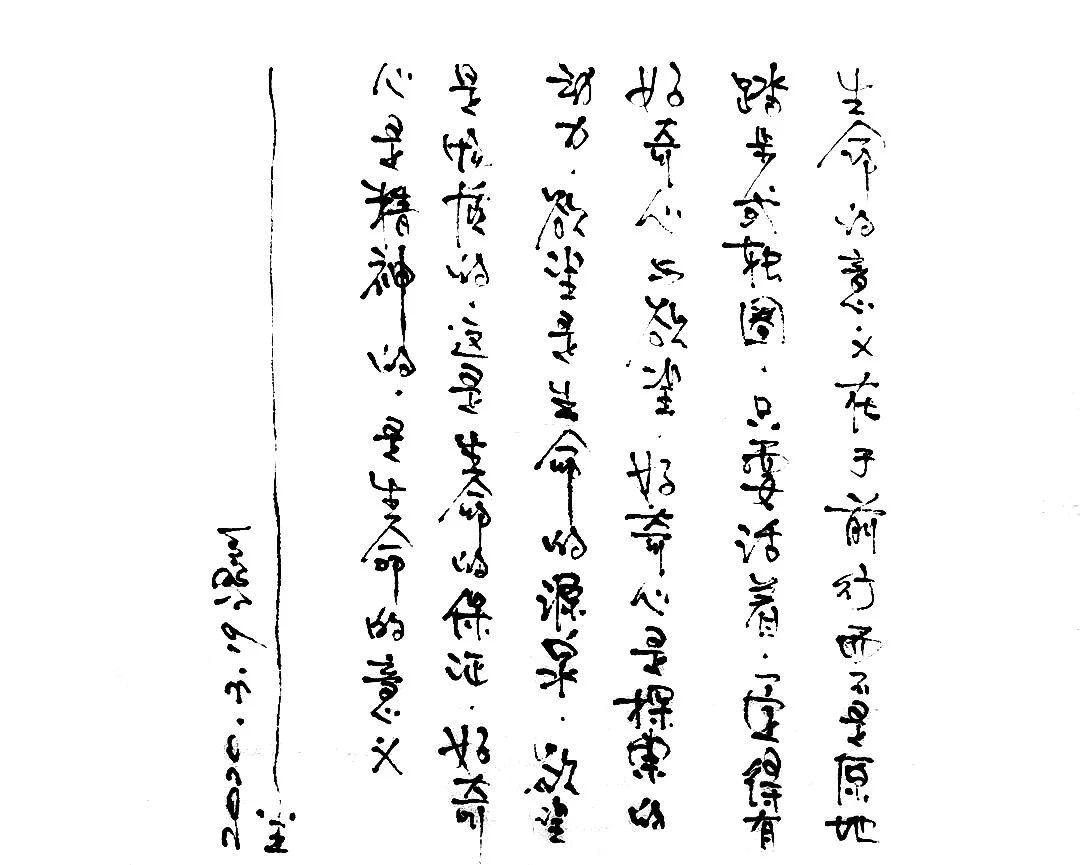 生命的意义在于前行而不是原地
踏步或转圈.只要活着.一定得有
好奇心与欲望.好奇心是探索的
动力.欲望是生命的源泉.欲望
是物质的.这是生命的保证.好奇
心是精神的.是生命的意义
2020.3.19温州